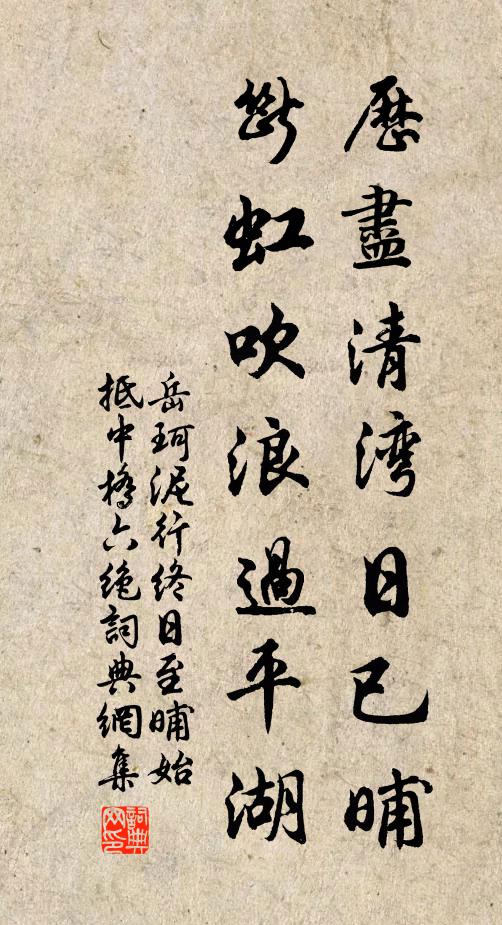 歷盡清湾日已晡
斷虹吹浪過平湖
岳珂泥行終日至晡始
抵中橋六絶詞典網集
詞典
网印